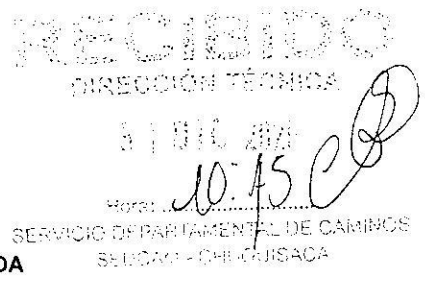 RECIBIDO
DIRECCIÓN TÉCNICA
DIC
Hora: 10:45
SERVICIO DEPARTAMENTAL DE CAMINOS
SEDCAM - CHUQUISACA
DA